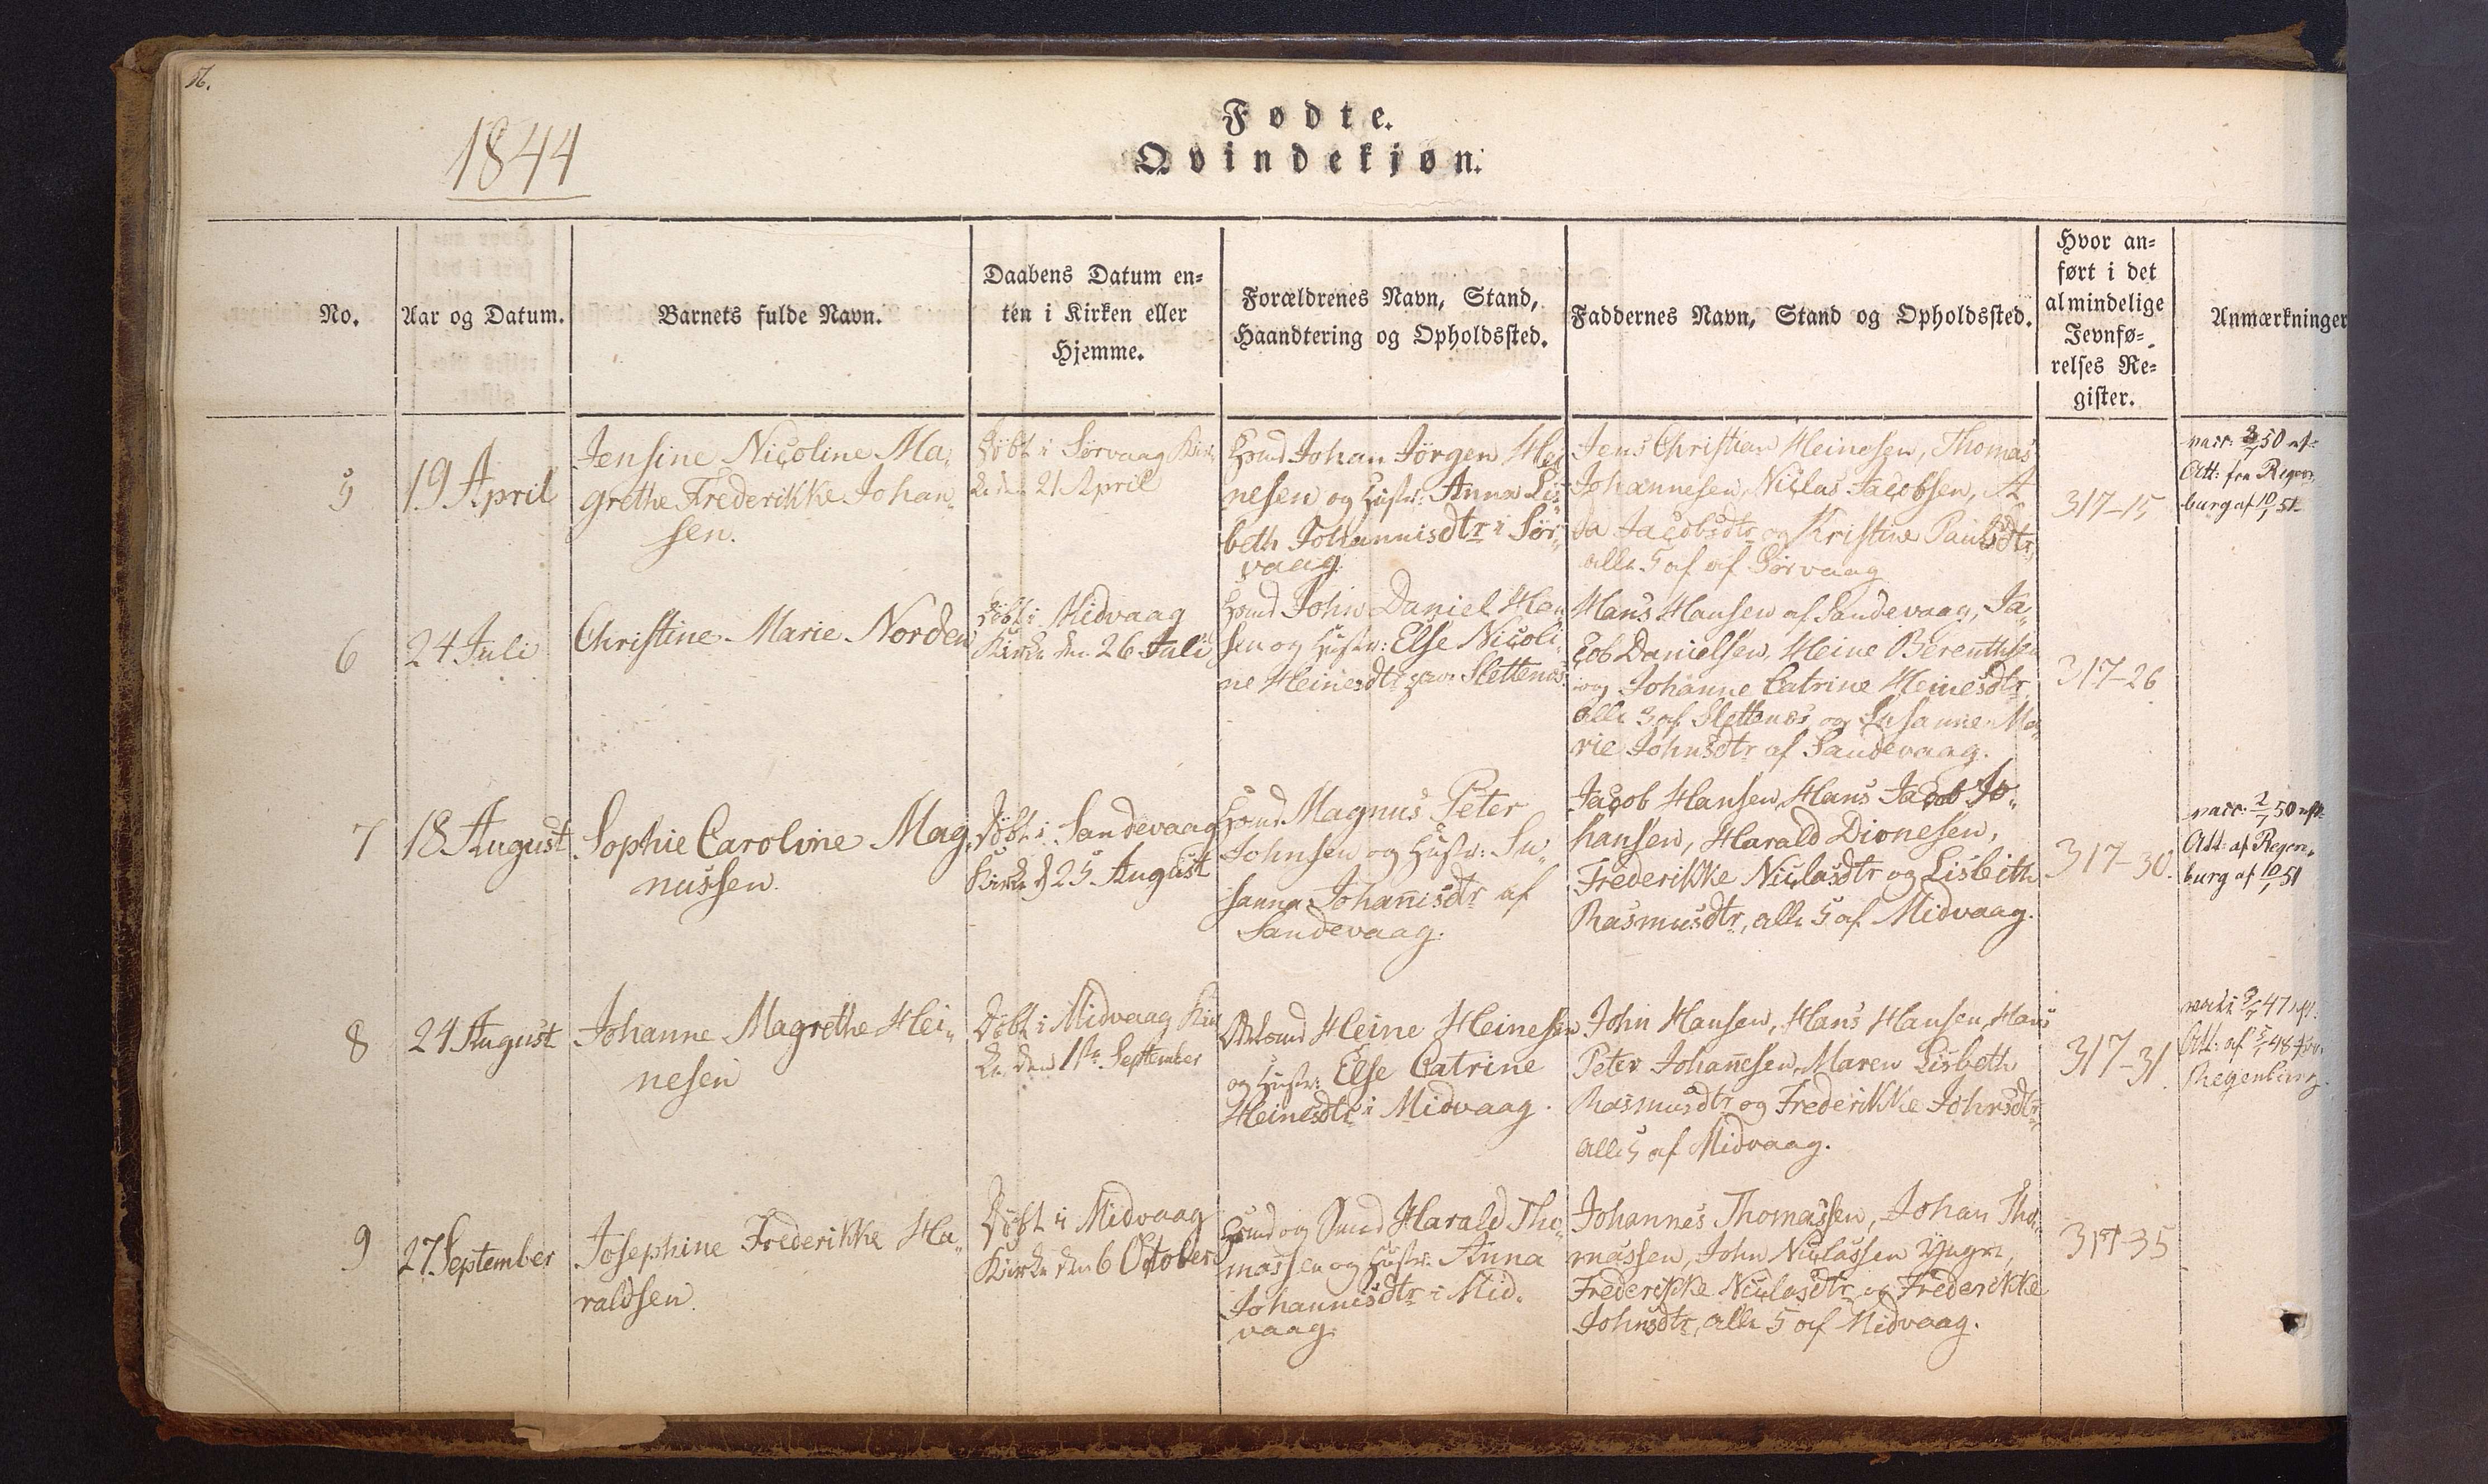 56.
1844
Fødte.
Qvindekjøn.
No.
Aar og Datum.
Barnets fulde Navn.
Daabens Datum en-
ten i Kirken eller
Hjemme.
Forældrenes Navn, Stand,
Haandtering og Opholdssted.
Faddernes Navn, Stand og Opholdssted.
Hvor an-
ført i det
almindelige
Jevnfø-
relses Re-
gister.
Anmærkninger
5
19 April
Jensine Nicoline Ma-
grethe Frederikke Johan-
sen.
Døbt i Sørvaag Kir-
ke den 21 April
Johan Jørgen Hei-
nesen og Hustr: Anna Lis-
beth Johannisdtr i Sør-
vaag.
Jens Christian Heinesen, Thomas
Johannesen, Niclas Jacobsen, A
da Jacobsdtr og Kristine Paulsdtr,
alle 5 af af Sørvaag
317-15
vacc: 3/7 50 af-
Att: fra Regen-
burg af 10/1 51
6
24 Juli
Christine Marie Norden
Døbt i Midvaag
Kirke den 26 Juli
John Daniel Han-
sen og Hustr: Else Nicoli-
ne Heinesdtr paa Slettenæs
Hans Hansen af Sandevaag, Ja-
cob Danielsen, Heine Berenthsen
og Johanne Catrine Heinesdtr
alle 3 af Slettenæs og Susanne Ma-
rie Johnsdtr af Sandevaag.
317-26
7
18 August
Sophie Caroline Mag-
nussen.
Døbt i Sandevaag
Kirke d 25 August
Magnus Peter
Johnsen og Hustr: Su-
sanna Johannisdtr af
Sandevaag.
Jacob Hansen, Hans Jacob Jo-
hansen, Harald Dionesen,
Frederikke Niclasdtr og Lisbeith
Rasmusdtr, alle 5 af Midvaag.
317-30.
vacc: 2/7 50
Att: af Regen-
burg af 10/1 51
8
24 August
Johanne Magrethe Hei-
nesen
Døbt i Midvaag Kir
ke den 1ste September
Heine Heinesen
og Hustr: Else Catrine
Heinesdtr i Midvaag.
John Hansen, Hans Hansen, Hans
Peter Johannesen, Maren Lisbeth
Rasmusdtr og Frederikke Johnsdtr,
alle 5 af Midvaag.
317-31.
47
Att: af 48
Regenburg.
9
27 September
Josephine Frederikke Ha-
raldsen.
Døbt i Midvaag
Kirke den 6 October
og Harald Tho-
massen og Hustr: Anna
Johannisdtr i Mid-
vaag.
Johannes Thomassen, Johan Tho-
massen, John Niclassen Yngre,
Frederikke Niclasdtr og Frederikke
Johnsdtr, alle 5 af Midvaag.
317-35